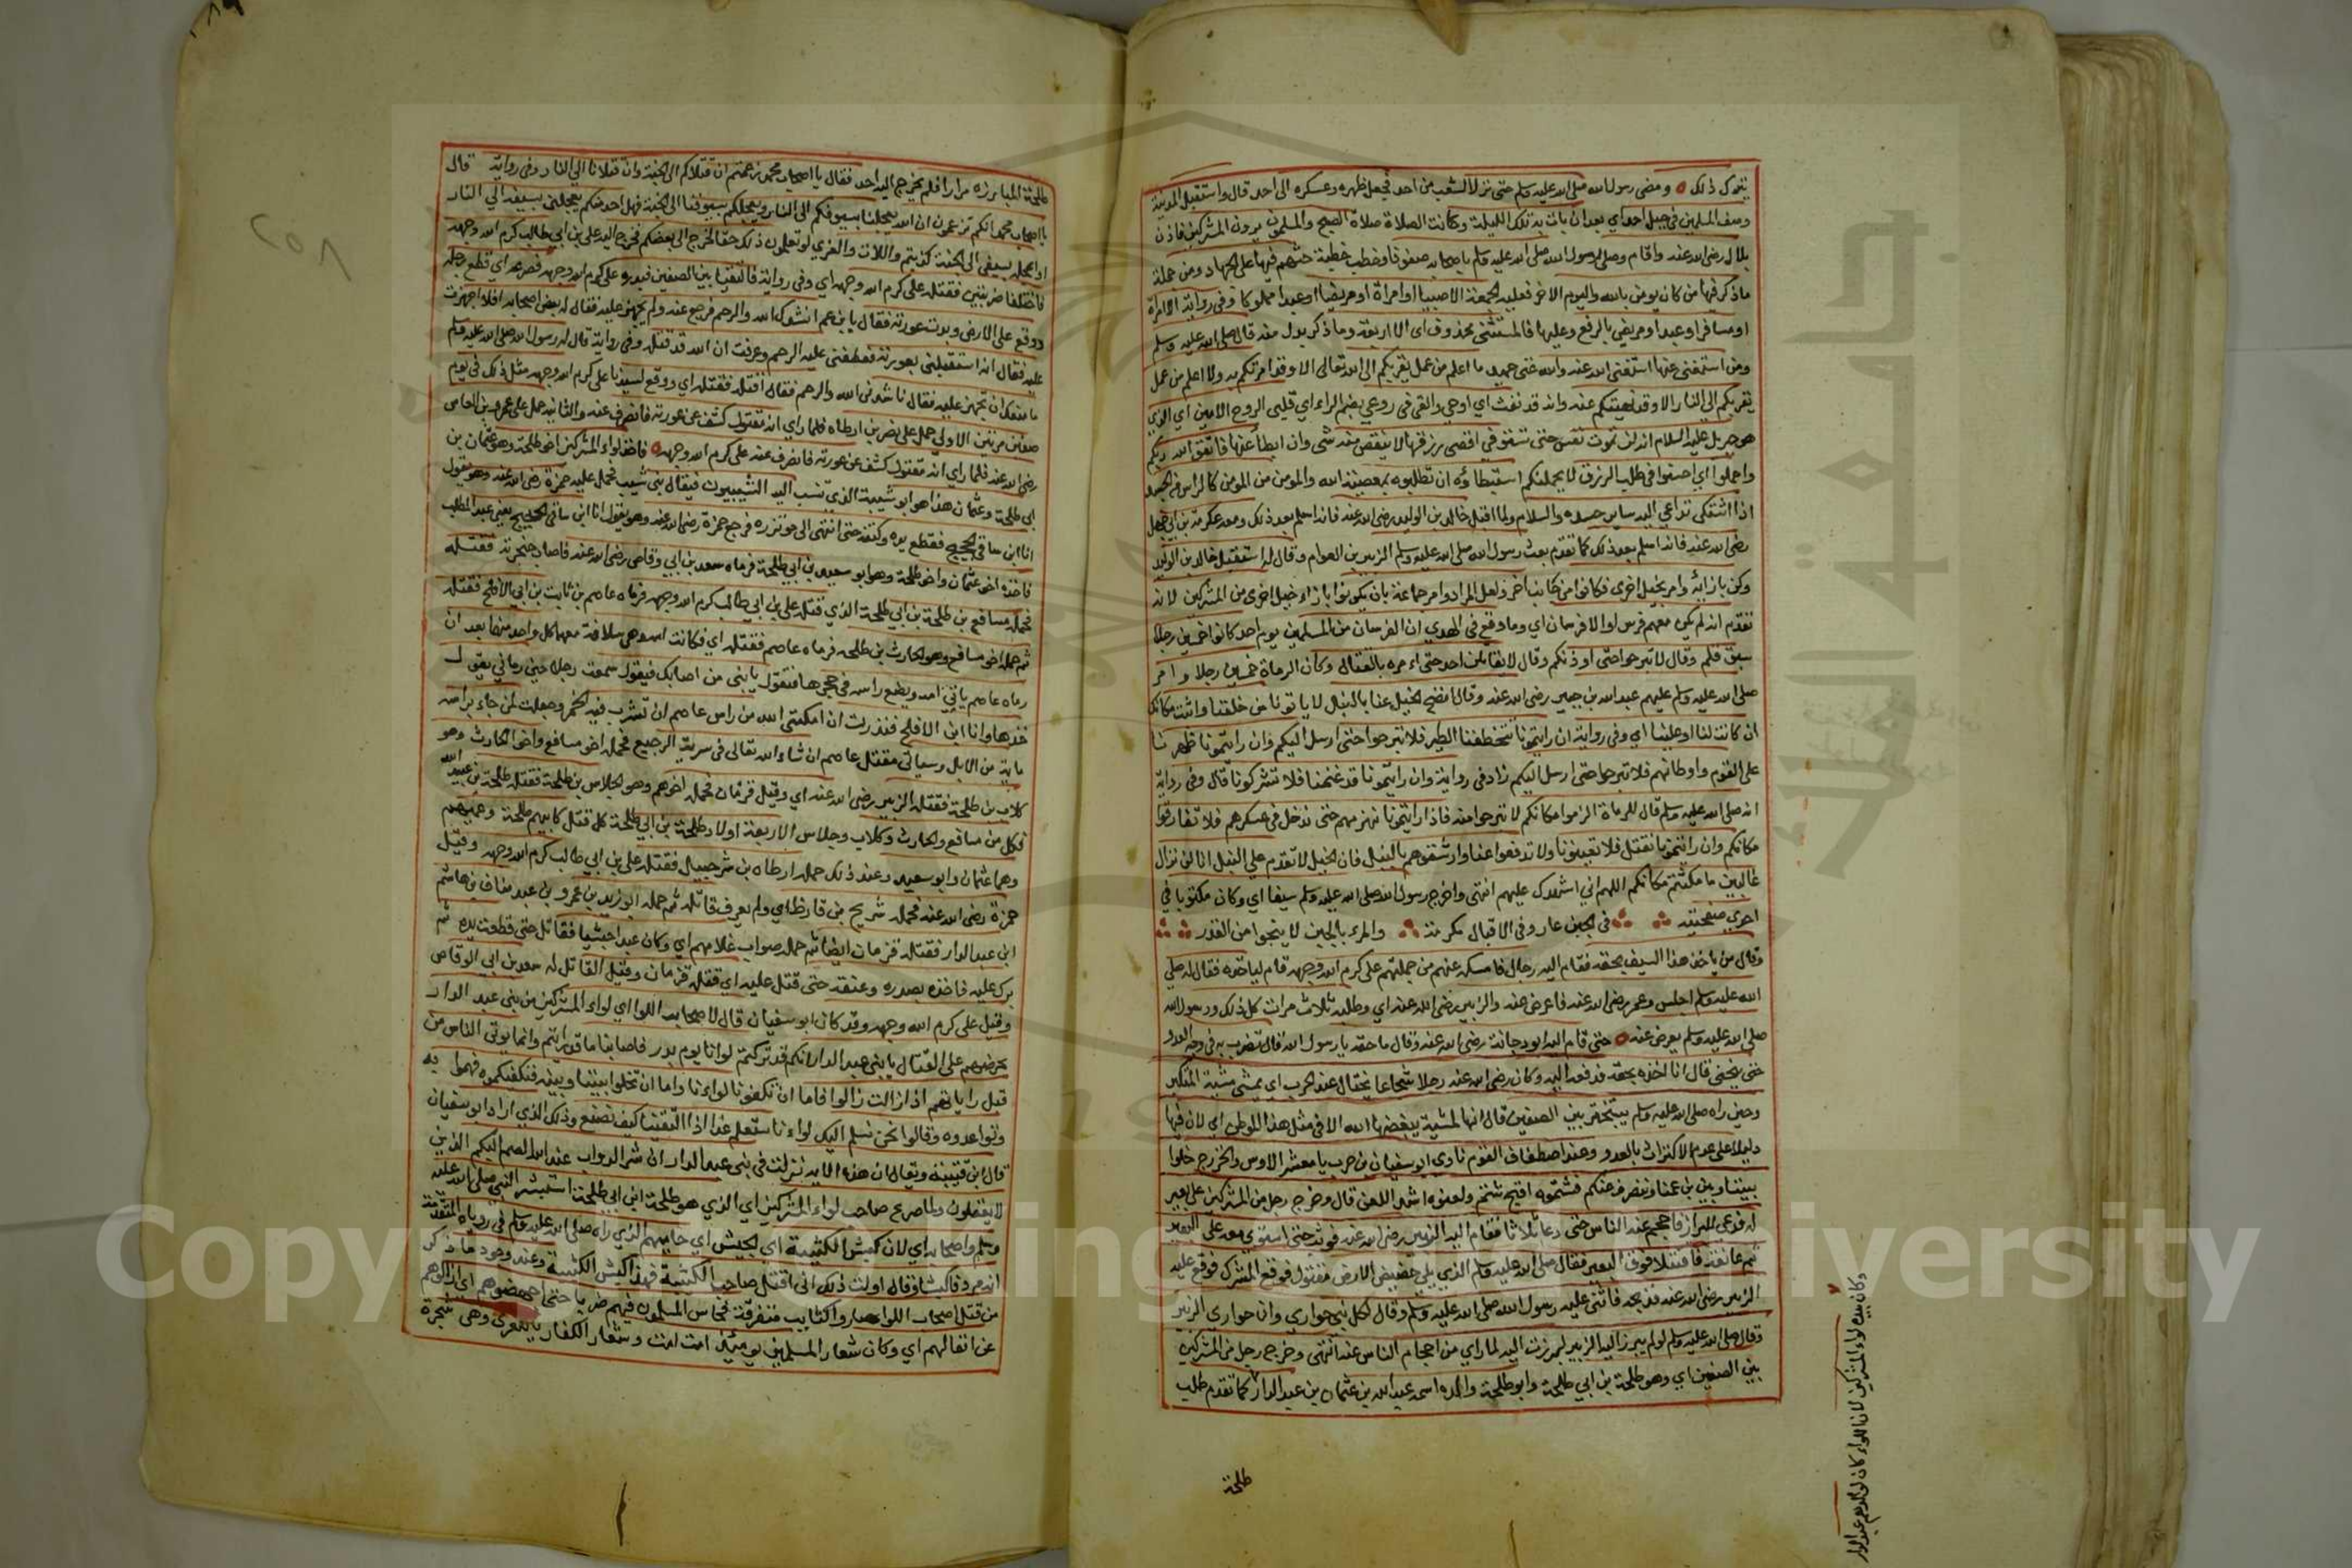 يترك ذلك ومضى رسول الله صلى الله عليه وسلم حتى نزل الشعب من احد فجعل ظهره وعسكره الى احد قال واستقبل المدينة
وصف المسلمين في جبل احد اي بعد ان بات به تلك الليلة وكانت الصلاة صلاة الصبح والمسلمون يرون المشركين فاذن
بلال رضي الله عنه واقام وصلى رسول الله صلى الله عليه وسلم باصحابه صفوفا وخطب خطبة حثهم فيها على الجهاد ومن جملة
ما ذكر فيها من كان يومن بالله واليوم الاخر فعليه الجمعة الا صبيا او امراة او مريضا او عبدا مملوكا وفي رواية الا امراة
او مسافر او عبد او مريض بالرفع وعليها فالمستثنى محذوف اي الا اربعة وما ذكر بدل منه قال صلى الله عليه وسلم
ومن استغنى عنها استغنى الله عنه والله غني حميد ما اعلم من عمل يقربكم الى الله تعالى الا وقد امرتكم به ولا اعلم من عمل
يقربكم الى النار الا وقد نهيتكم عنه وانه قد نفث اي اوحى والقى في روعي بضم الراء اي قلبي الروح الامين اي الذي
هو جبريل عليه السلام انه لن تموت نفس حتى تستوفي اقصى رزقها لا ينقص منه شي وان ابطا عنها فاتقوا الله ربكم
واجملوا اي احسنوا في طلب الرزق لا يحملنكم استبطاؤه ان تطلبوه بمعصية الله والمومن من المومن كالراس من الجسد
اذا اشتكى تداعي اليه ساير جسده والسلام ولما اقبل خالد بن الوليد رضي الله عنه فانه اسلم بعد ذلك ومعه عكرمة بن ابي جهل
رضي الله عنه فانه اسلم بعد ذلك كما تقدم بعث رسول الله صلى الله عليه وسلم الزبير بن العوام وقال له استقبل خالد بن الوليد
وكن بازائه وامر بخيل اخرى فكانوا من جانب اخر ولعل المراد وامر جماعة بان يكونوا بازاء خيل اخرى من المشركين لانه
تقدم انه لم يكن معهم فرس اوالا فرسان اي وما وقع في الهدي ان الفرسان من المسلمين يوم احد كانوا خمسين رجلا
سبق قلم وقال لا تبرحوا حتى اوذنكم وقال لا يقاتلن احد حتى امره بالقتال وكان الرماة خمسين رجلا وامر
صلى الله عليه وسلم عليهم عبد الله بن جبير رضي الله عنه وقال انضح الخيل عنا بالنبل لا ياتونا من خلفنا واثبت مكانك
ان كانت لنا او علينا اي وفي رواية ان رايتمونا تتخطفنا الطير فلا تبرحوا حتى ارسل اليكم وان رايتمونا ظهرنا
على القوم واوطاناهم فلا تبرحوا حتى ارسل اليكم زاد في رواية وان رايتمونا قد غنمنا فلا تشركونا قال وفي رواية
انه صلى الله عليه وسلم قال للرماة الزموا مكانكم لا تبرحوا منه فاذا رايتمونا نهزمهم حتى ندخل في عسكرهم فلا تفارقوا
مكانكم وان رايتمونا نقتل فلا تعينونا ولا تدفعوا عنا وارشقوهم بالنبل فان الخيل لا تقدم على النبل انا لن نزال
غالبين ما مكثتم مكانكم اللهم اني اشهدك عليهم انتهى واخرج رسول الله صلى الله عليه وسلم سيفا اي وكان مكتوبا في
احدى صفحتيه في الجبن عار وفي الاقبال مكرمة والمرء بالجبن لا ينجوا من القدر
وقال من ياخذ هذا السيف بحقه فقام اليه رجال فامسكه عنهم من جملتهم علي كرم الله وجهه قام لياخذه فقال له صلى
الله عليه وسلم اجلس وعمر رضي الله عنه فاعرض عنه والزبير رضي الله عنه اي وطلبه ثلاث مرات كل ذلك ورسول الله
صلى الله عليه وسلم يعرض عنه حتى قام اليه ابو دجانة رضي الله عنه وقال ما حقه يا رسول الله قال تضرب به في وجه العدو
حتى ينحني قال انا اخذه بحقه فدفعه اليه وكان رضي الله عنه رجلا شجاعا يختال عند الحرب اي يمشي مشية المتكبر
وحين راه صلى الله عليه وسلم يتبختر بين الصفين قال انها لمشية يبغضها الله الا في مثل هذا الموطن اي لان فيها
دليلا على عدم الاكتراث بالعدو وعند اصطفاف القوم نادى ابو سفيان بن حرب يا معشر الاوس والخزرج خلوا
بيننا وبين بني عمنا وننصرف عنكم فشتموه اقبح شتم ولعنوه اشد اللعن قال وخرج رجل من المشركين على بعير
له فدعى للبراز فاحجم عنه الناس حتى دعا ثلاثا فقام اليه الزبير رضي الله عنه فوثب حتى استوى معه على البعير
ثم عانقه فاقتتلا فوق البعير فقال صلى الله عليه وسلم الذي يلي حضيض الارض مقتول فوقع المشرك فوقع عليه
الزبير رضي الله عنه فذبحه فاثنى عليه رسول الله صلى الله عليه وسلم وقال لكل نبي حواري وان حواري الزبير
وقال صلى الله عليه وسلم لو لم يبرز اليه الزبير لبرزت اليه لما راي من احجام الناس عنه انتهى وخرج رجل من المشركين
بين الصفين اي وهو طلحة بن ابي طلحة وابو طلحة والده اسمه عبد الله بن عثمان بن عبد الدار كما تقدم طلب
طلحة
وكان بيده لواء المشركين لان اللواء كان لوالدهم عبد الدار
طلحة المبارزة مرارا فلم يخرج اليه احد فقال يا اصحاب محمد زعمتم ان قتلاكم الى الجنة وان قتلانا الى النار وفي رواية قال
يا اصحاب محمد انكم تزعمون ان الله يعجلنا بسيوفكم الى النار ويعجلكم بسيوفنا الى الجنة فهل احد منكم يعجلني بسيفه الى النار
او اعجله بسيفي الى الجنة كذبتم واللات والعزي لو تعلمون ذلك حقا لخرج الي بعضكم فخرج اليه علي بن ابي طالب كرم الله وجهه
فاختلفا ضربتين فقتله علي كرم الله وجهه اي وفي رواية فالتقيا بين الصفين فبدره علي كرم الله وجهه فصرعه اي قطع رجله
ووقع على الارض وبدت عورته فقال يا ابن عم انشدك الله والرحم فرجع عنه ولم يجهز عليه فقال له بعض اصحابه افلا اجهزت
عليه فقال انه استقبلني بعورته فعطفني عليه الرحم وعرفت ان الله قد قتله وفي رواية قال له رسول الله صلى الله عليه وسلم
ما منعك ان تجهز عليه فقال ناشدني الله والرحم فقال اقتله فقتله اي ووقع لسيدنا علي كرم الله وجهه مثل ذلك في يوم
صفين مرتين الاولى حمل على بسر بن ارطاه فلما راي انه مقتول كشف عن عورته فانصرف عنه والثانية حمل على عمرو بن العاص
رضي الله عنه فلما راي انه مقتول كشف عن عورته فانصرف عنه علي كرم الله وجهه فاخذ لواء المشركين اخو طلحة وهو عثمان بن
ابي طلحة وعثمان هذا هو ابو شيبة الذي ينسب اليه الشيبيون فيقال بني شيبة فحمل عليه حمزة رضي الله عنه وهو يقول
انا ابن ساقي الحجيج فقطع يده وكتفه حتى انتهى الى موتزره فرجع حمزة رضي الله عنه وهو يقول انا ابن ساقي الحجيج يعني عبد المطلب
فاخذه اخو عثمان واخو طلحة وهو ابو سعيد بن ابي طلحة فرماه سعد بن ابي وقاص رضي الله عنه فاصاب حنجرته فقتله
فحمله مسافع بن طلحة بن ابي طلحة الذي قتله علي بن ابي طالب كرم الله وجهه فرماه عاصم بن ثابت بن ابي الافلح فقتله
ثم حمله اخو مسافع وهو الحارث بن طلحه فرماه عاصم فقتله اي فكانت امه وهي سلافة معهما كل واحد منهما بعد ان
رماه عاصم ياتي امه ويضع راسه في حجرها فتقول يا بني من اصابك فيقول سمعت رجلا حين رماني يقول
خذها وانا ابن الافلح فنذرت ان امكنني الله من راس عاصم ان تشرب فيه الخمر وجعلت لمن جاء براسه
ماية من الابل وسياتي مقتل عاصم ان شاء الله تعالى في سرية الرجيع فحمله اخو مسافع واخو الحارث وهو
كلاب بن طلحة فقتله الزبير رضي الله عنه اي وقيل قزمان فحمله اخوهم وهو الجلاس بن طلحة فقتله طلحة بن عبيد الله
فكل من مسافع والحارث وكلاب وجلاس الاربعة اولاد طلحة بن ابي طلحة كل قتل كابيهم طلحة وعميهم
وهما عثمان وابو سعيد وعند ذلك حمله ارطاه بن شرحبيل فقتله علي بن ابي طالب كرم الله وجهه وقيل
حمزة رضي الله عنه فحمله شريح بن قارظ اي ولم يعرف قاتله ثم حمله ابو زيد بن عمرو بن عبد مناف بن هاشم
ابن عبد الدار فقتله قزمان ايضا ثم حمله صواب غلامهم اي وكان عبدا حبشيا فقاتل حتى قطعت يده ثم
برك عليه فاخذه بصدره وعنقه حتى قتل عليه اي قتله قزمان وقيل القاتل له سعد بن ابي الوقاص
وقيل علي كرم الله وجهه وقد كان ابو سفيان قال لاصحاب اللوا اي لواء المشركين من بني عبد الدار
يحرضهم على القتال يا بني عبد الدار انكم قد تركتم لوانا يوم بدر فاصابنا ما قد رايتم وانما يوتى الناس من
قبل راياتهم اذا زالت زالوا فاما ان تكفونا لواءنا واما ان تخلوا بيننا وبينه فنكفيكموه فهموا به
وتواعدوه وقالوا نحن نسلم اليك لواءنا ستعلم غدا اذا التقينا كيف نصنع وذلك الذي اراد ابو سفيان
قال ابن قتيبة ويقال ان هذه الاية نزلت في بني عبد الدار ان شر الدواب عند الله الصم البكم الذين
لا يعقلون ولما صرع صاحب لواء المشركين اي الذي هو طلحة ابن ابي طلحة استبشر النبي صلى الله عليه
وسلم واصحابه اي لانه كبش الكتيبة اي الجيش اي حاميهم الذي راه صلى الله عليه وسلم في روياه المتقدمة
انه مردف كبشا وقال اولت ذلك اني اقتل صاحب الكتيبة فهذا كبش الكتيبة وعند وجود ما ذكر
من قتل اصحاب اللواء صاروا كتايب متفرقة فجاس المسلمون فيهم ضربا حتى اجهضوهم اي ازالوهم
عن اثقالهم اي وكان شعار المسلمين يومئذ امت امت وشعار الكفار يا للعزى وهي شجرة
٢٥٨
Copy ing University